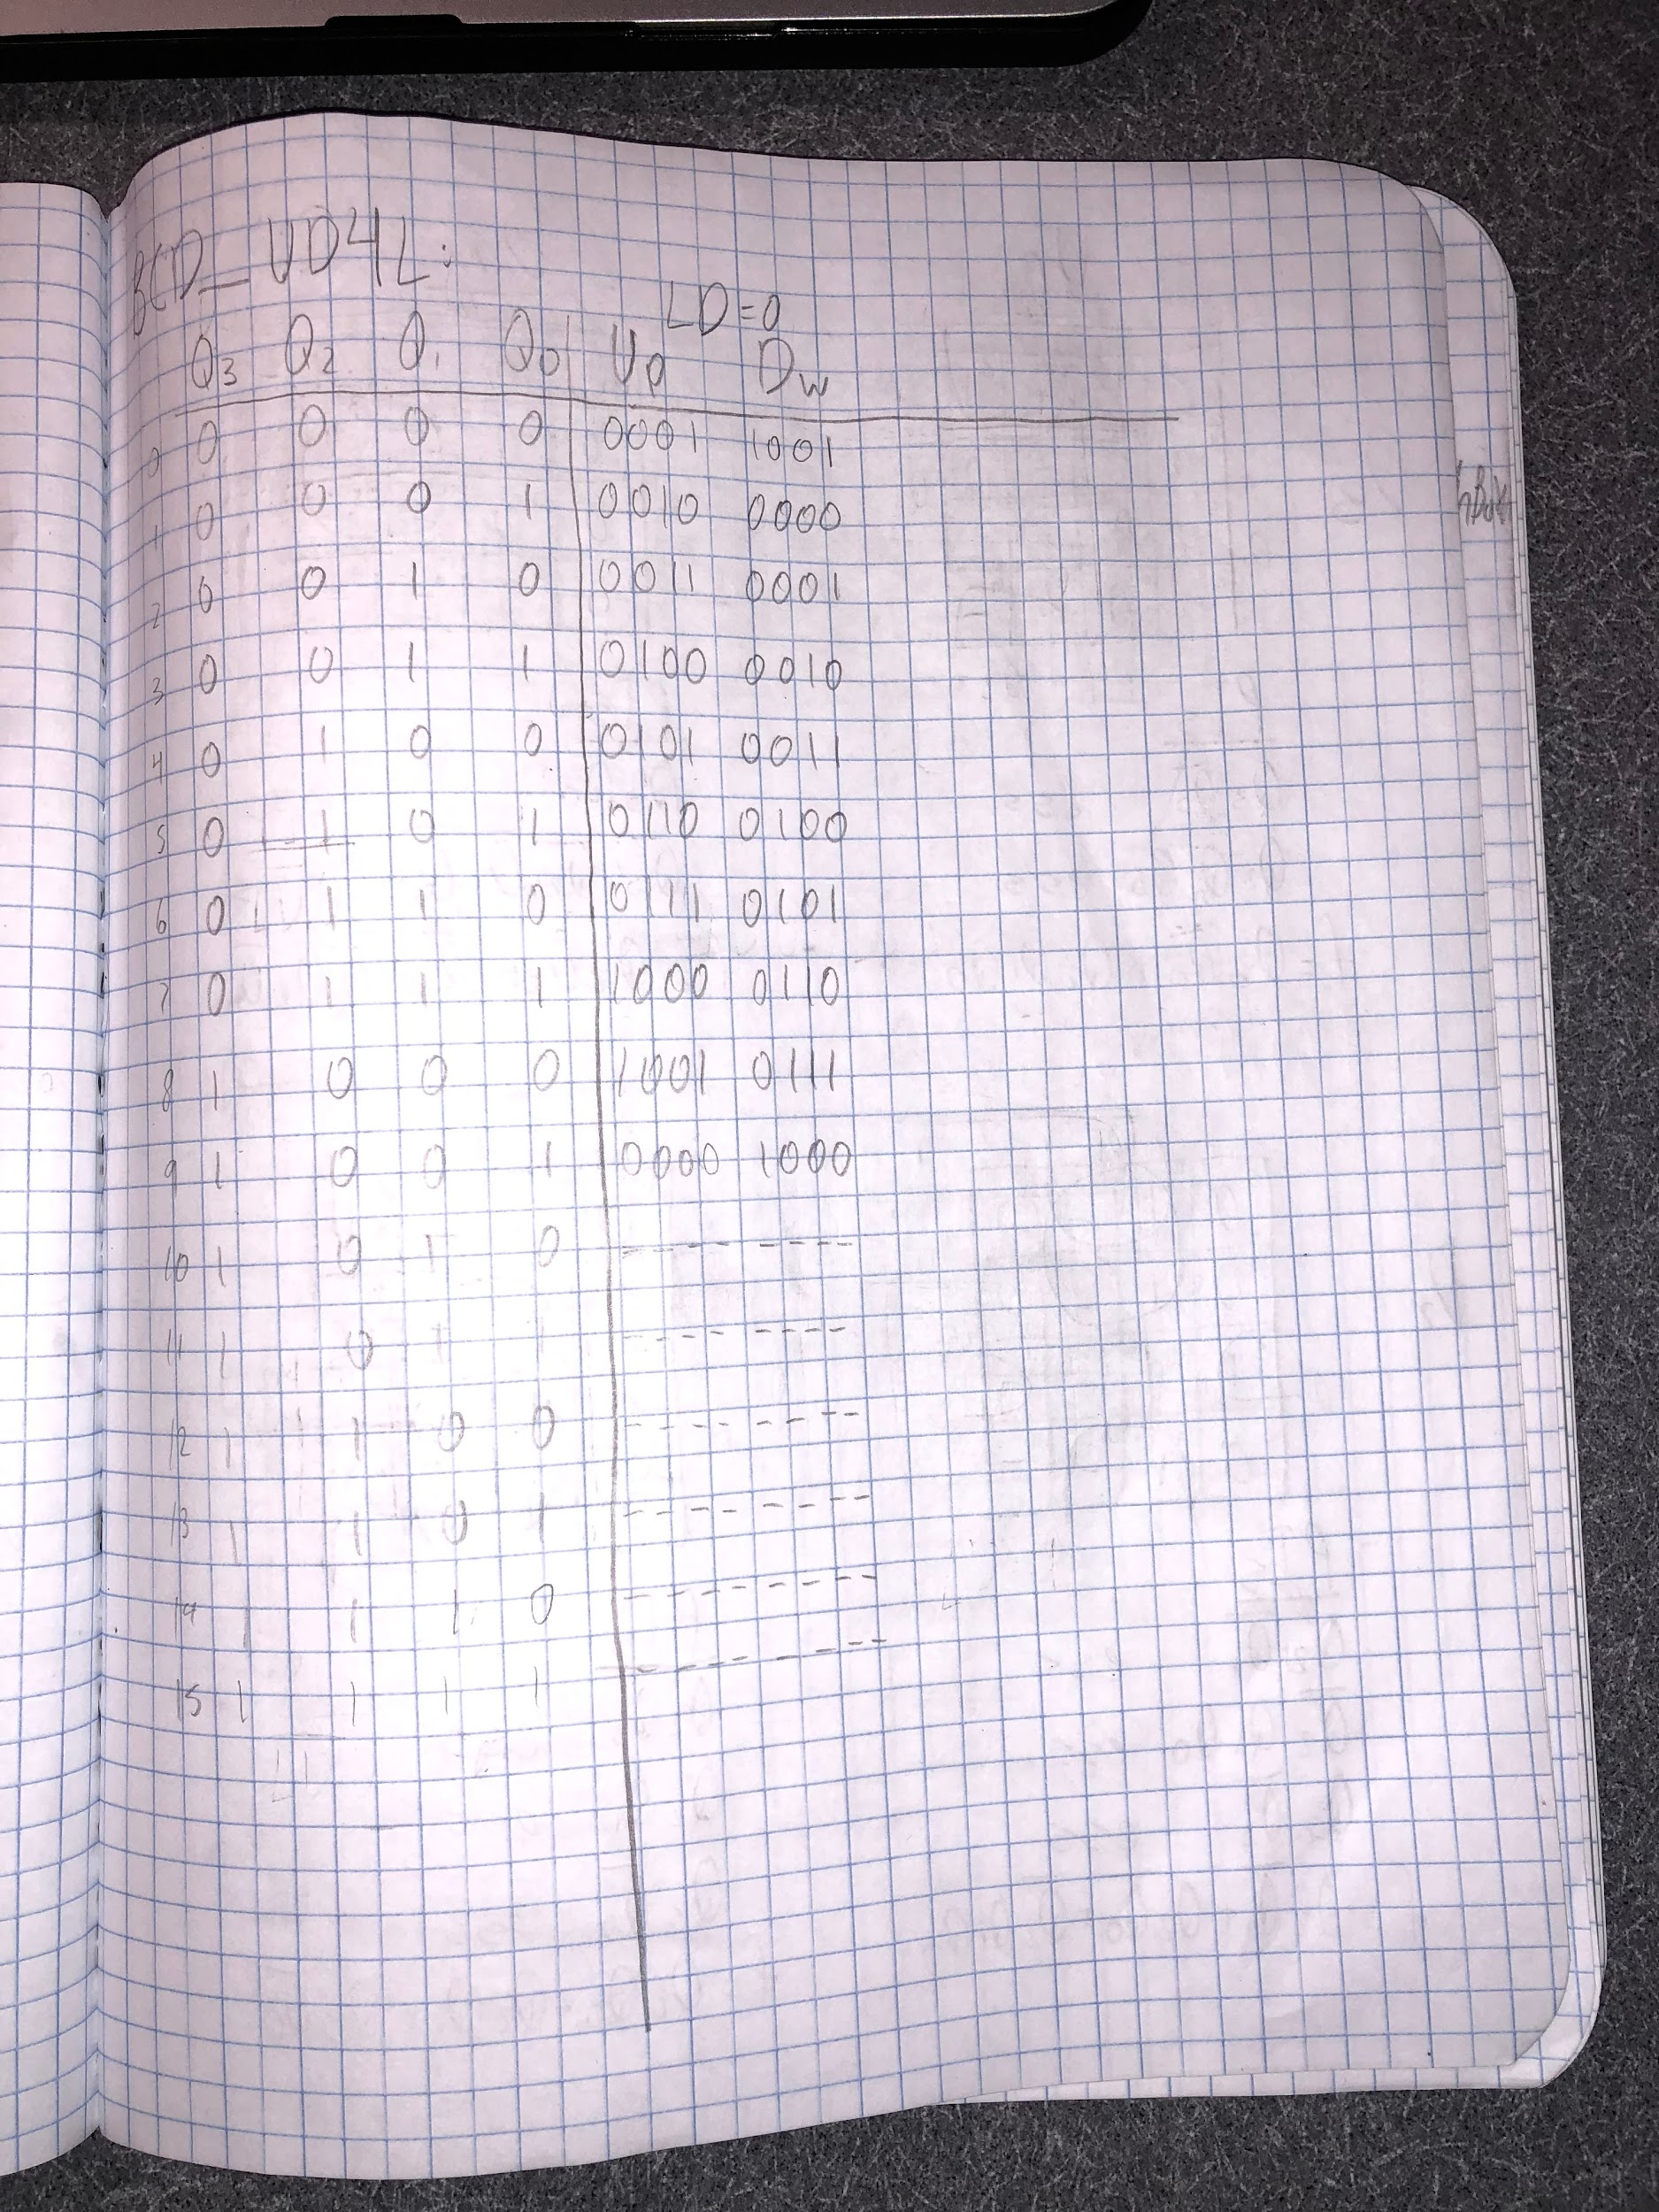 BCD_UD4L:
LD=0
Q3 Q2 Q1 Q0 UP Dw
0 0 0 0 0 0001 1001
1 0 0 0 1 0010 0000
2 0 0 1 0 0011 0001
3 0 0 1 1 0100 0010
4 0 1 0 0 0101 0011
5 0 1 0 1 0110 0100
6 0 1 1 0 0111 0101
7 0 1 1 1 1000 0110
8 1 0 0 0 1001 0111
9 1 0 0 1 0000 1000
10 1 0 1 0 ---- ----
11 1 0 1 1 ---- ----
12 1 1 0 0 ---- ----
13 1 1 0 1 ---- ----
14 1 1 1 0 ---- ----
15 1 1 1 1 ---- ----